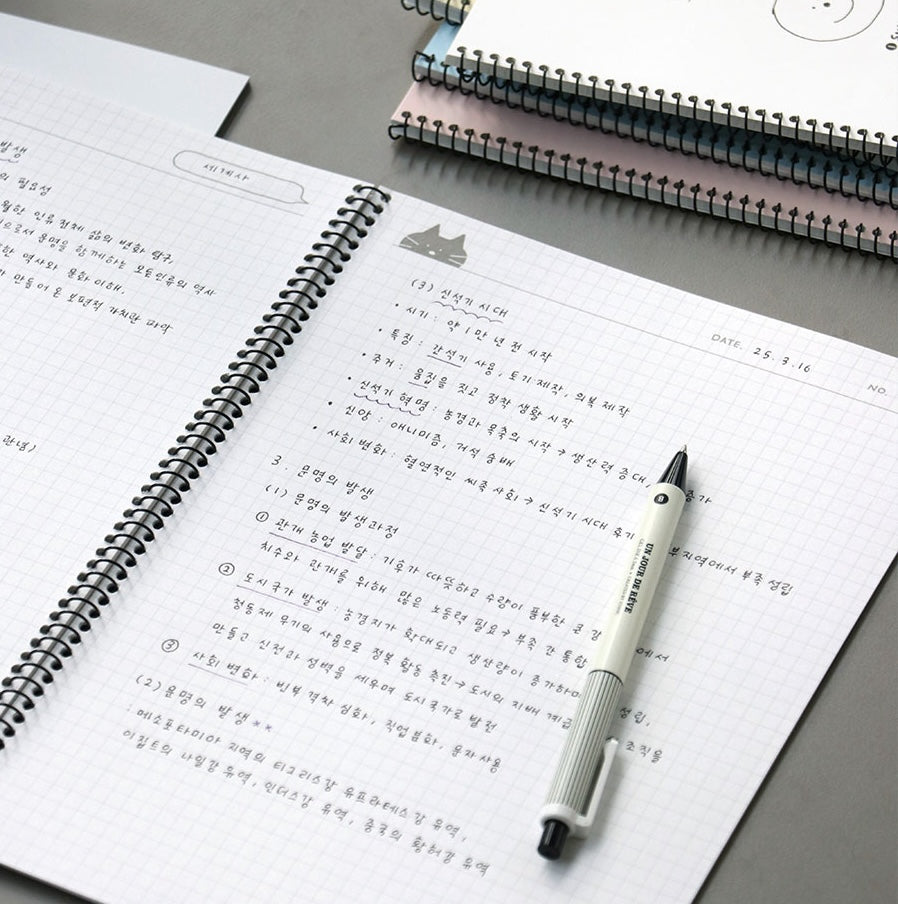 세계사
발생
의 필요성
인류 전체 삶의 변화 탐구.
으로서 문명을 함께하는 모든 인류의 역사
한 역사와 문화 이해.
만들어 온 보편적 가치관 파악
관념)
DATE. 25.3.16
NO.
(3) 신석기 시대
• 시기 : 약 1만 년 전 시작
• 특징 : 간석기 사용, 토기 제작, 의복 제작
• 주거 : 움집을 짓고 정착 생활 시작
• 신석기 혁명 : 농경과 목축의 시작 → 생산력 증대 증가
• 신앙 : 애니미즘, 거석 숭배
• 사회 변화 : 혈연적인 씨족사회 → 신석기 시대 후기 부지역에서 부족 성립
3. 문명의 발생
(1) 문명의 발생 과정
① 관개 농업 발달 : 기후가 따뜻하고 수량이 풍부한 큰 강 에서
치수와 관개를 위해 많은 노동력 필요 → 부족 간 통합
② 도시국가 발생 : 농경지가 확대되고 생산량이 증가하며 성립,
청동제 무기의 사용으로 정복 활동 촉진 → 도시의 지배 계급 조직을
만들고 신전과 성벽을 세우며 도시국가로 발전
③ 사회 변화 : 빈부 격차 심화, 직업 분화, 문자 사용
(2) 문명의 발생 **
: 메소포타미아 지역의 티그리스강 유프라테스강 유역,
이집트의 나일강 유역, 인더스강 유역, 중국의 황허강 유역
UN JOUR DE RÊVE